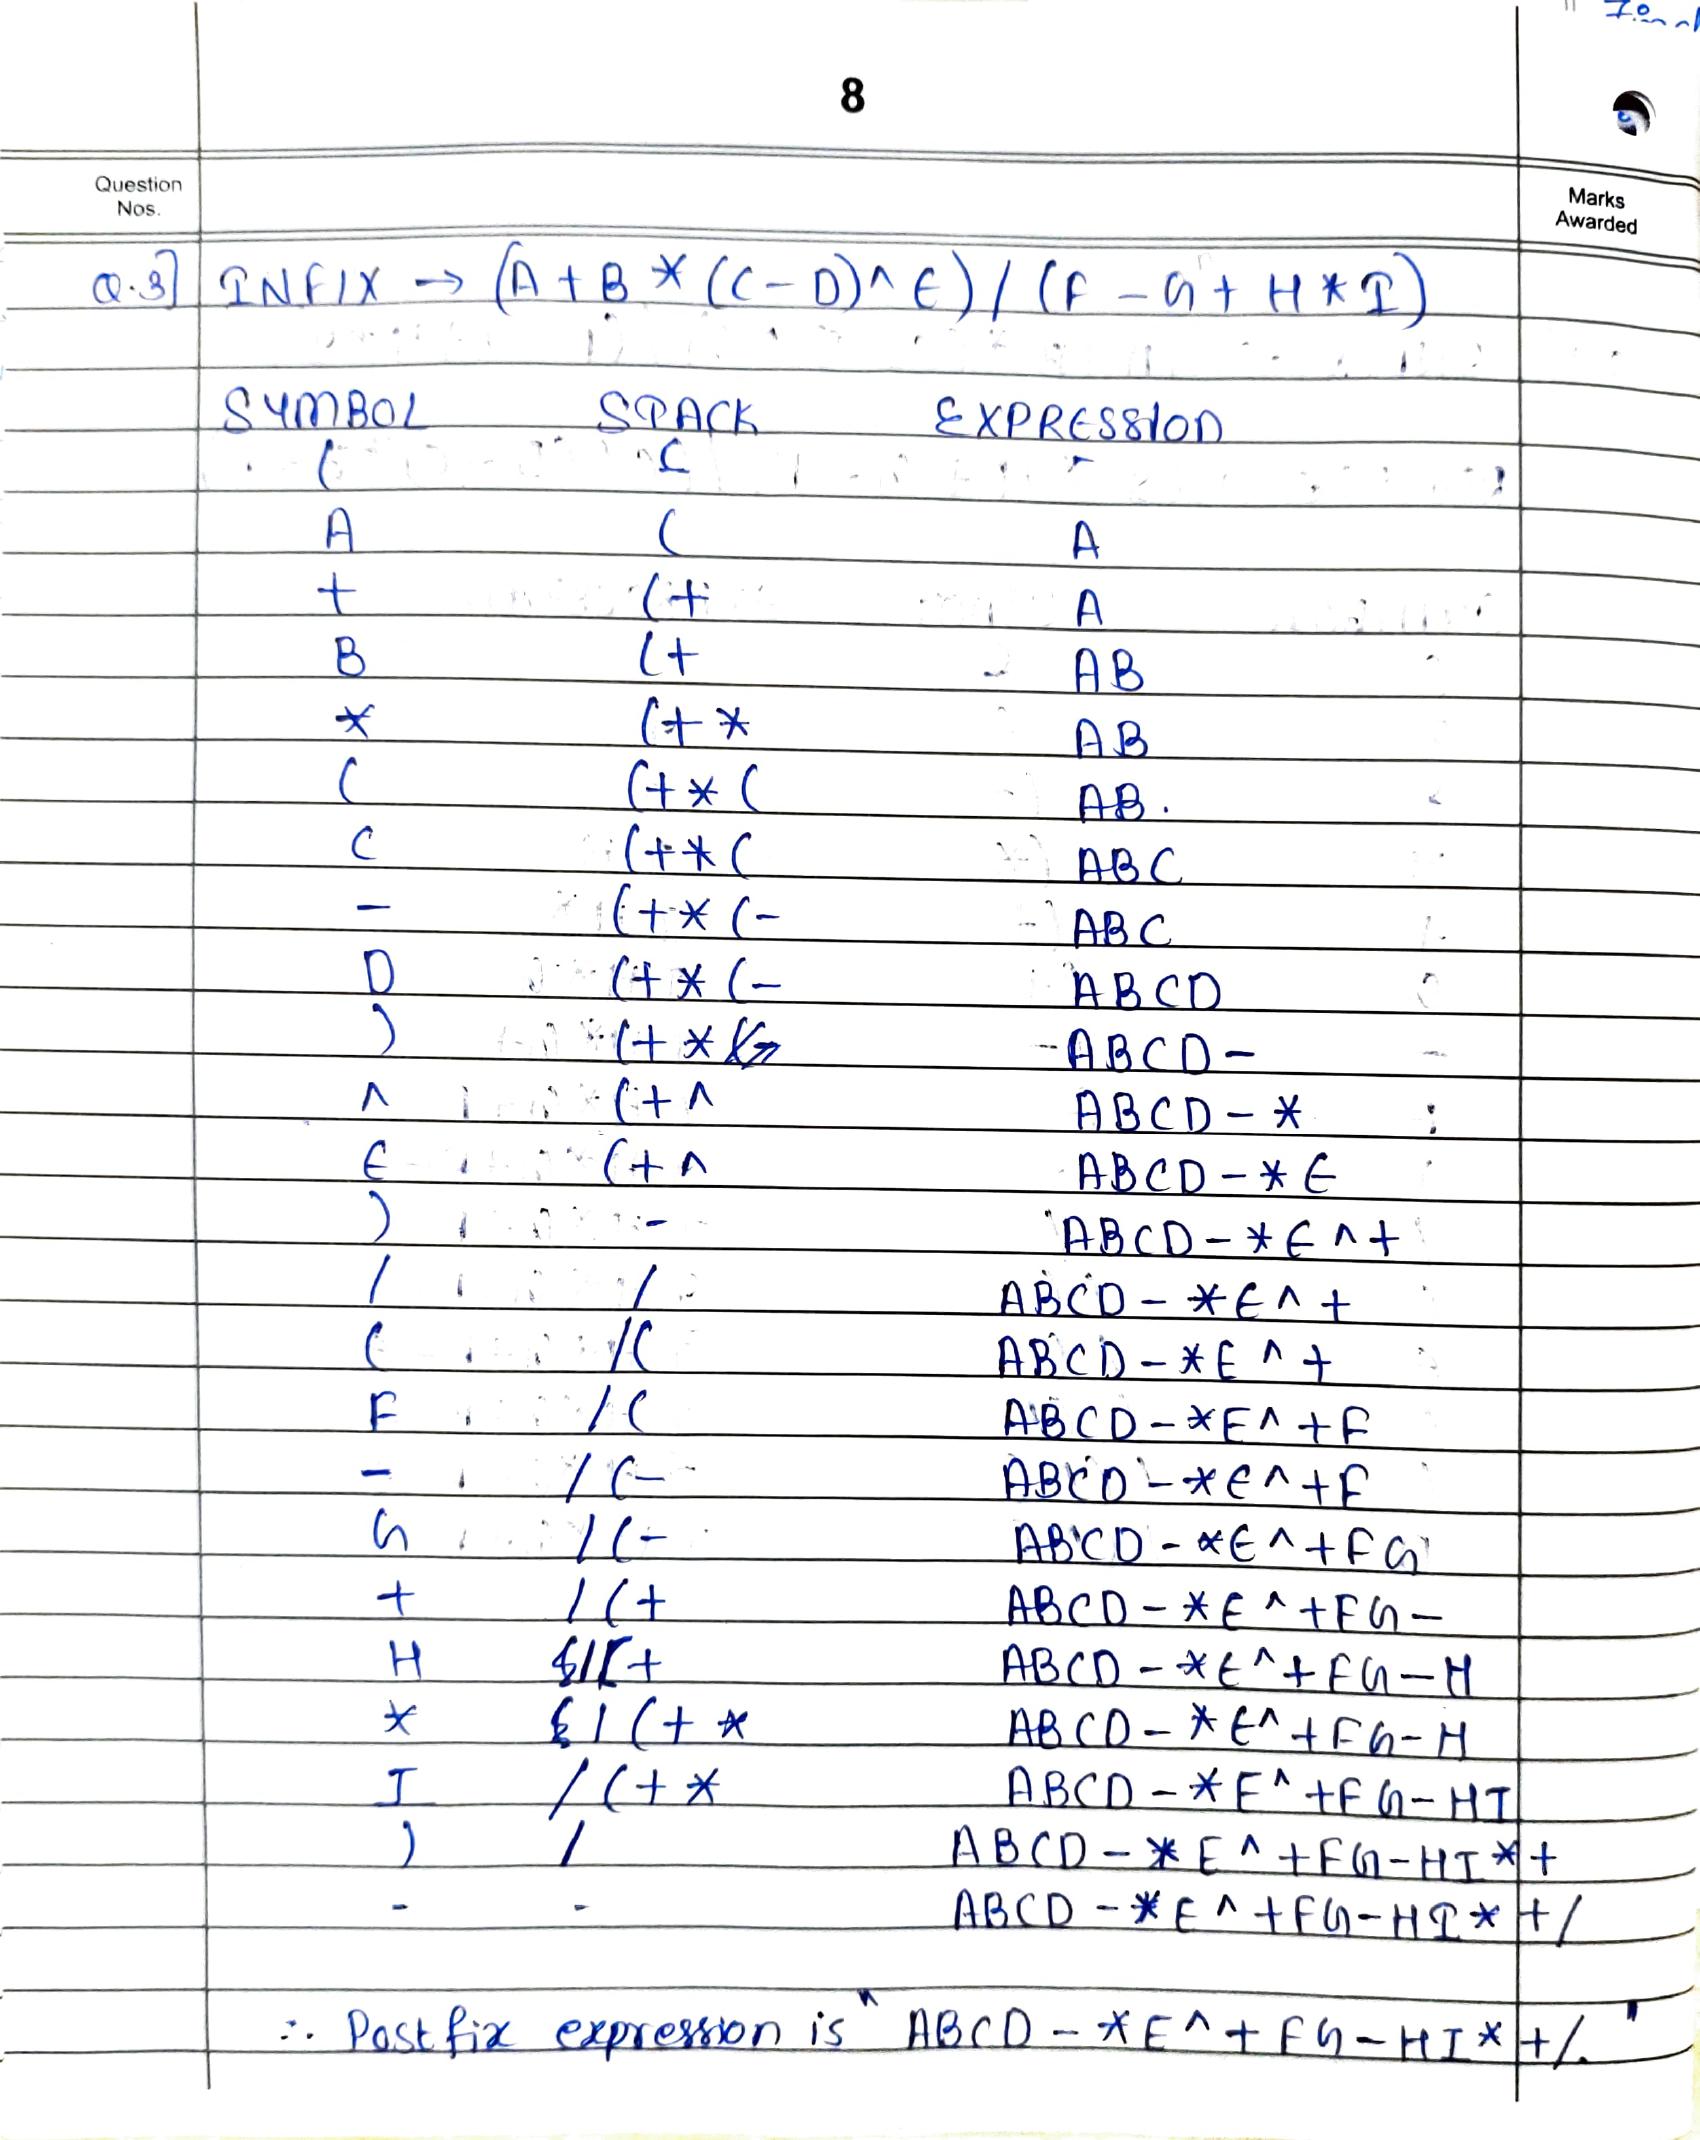 8
Question
Nos.
Marks
Awarded
Q.3] INFIX → (A + B * (C - D) ^ E) / (F - G + H * I)
SYMBOL STACK EXPRESSION
( ( -
A ( A
+ (+ A
B (+ AB
* (+ * AB
( (+ * ( AB.
C (+ * ( ABC
- (+ * (- ABC
D (+ * (- ABCD
) (+ * ABCD -
^ (+ ^ ABCD - *
E (+ ^ ABCD - * E
) - ABCD - * E ^ +
/ / ABCD - * E ^ +
( /( ABCD - * E ^ +
F /( ABCD - * E ^ + F
- /(- ABCD - * E ^ + F
G /(- ABCD - * E ^ + F G
+ /(+ ABCD - * E ^ + F G -
H /(+ ABCD - * E ^ + F G - H
* /(+ * ABCD - * E ^ + F G - H
I /(+ * ABCD - * E ^ + F G - H I
) / ABCD - * E ^ + F G - H I * +
- - ABCD - * E ^ + F G - H I * + /
∴ Postfix expression is " ABCD - * E ^ + F G - H I * + /. "